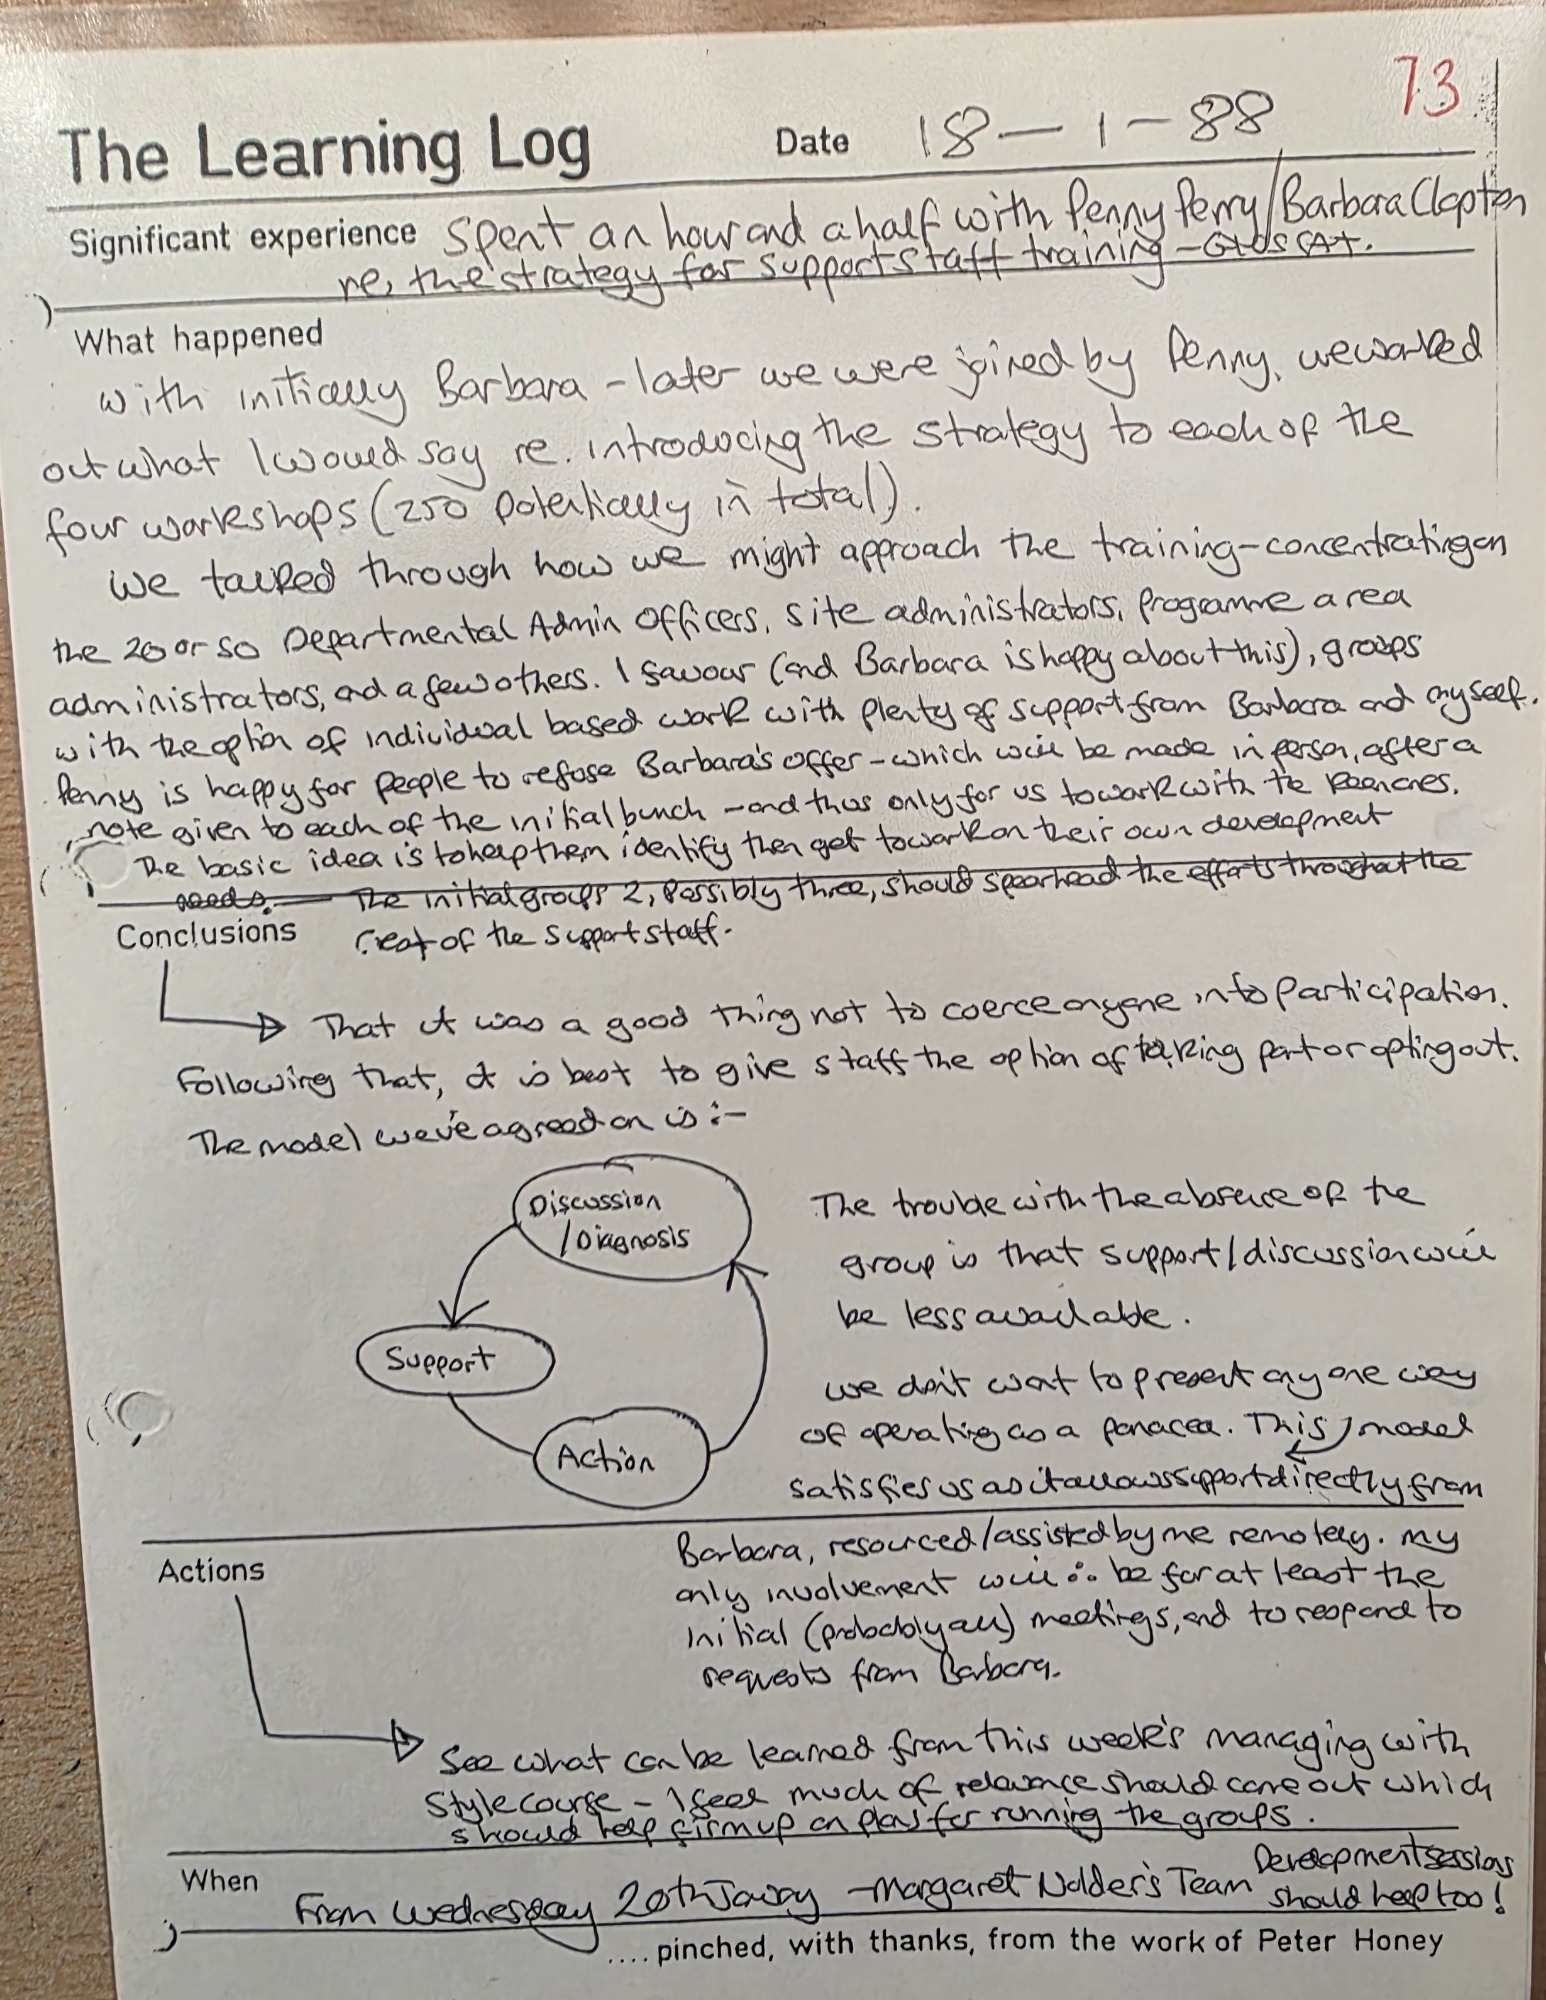 73
The Learning Log Date 18-1-88
Significant experience Spent an hour and a half with Penny Perry/Barbara Clapton
re, the strategy for support staff training - GLOSCAT.
What happened
With initially Barbara - later we were joined by Penny, we worked
out what I would say re. introducing the strategy to each of the
four workshops (250 potentially in total).
We talked through how we might approach the training - concentrating on
the 20 or so Departmental Admin Officers, site administrators, programme area
administrators, and a few others. I favour (and Barbara is happy about this), groups
with the option of individual based work with plenty of support from Barbara and myself.
Penny is happy for people to refuse Barbara's offer - which will be made in person, after a
note given to each of the initial bunch - and thus only for us to work with the keen ones.
The basic idea is to help them identify then get to work on their own development
needs. The initial groups 2, possibly three, should spearhead the efforts throughout the
Conclusions rest of the support staff.
That it was a good thing not to coerce anyone into participation.
Following that, it is best to give staff the option of taking part or opting out.
The model we've agreed on is :-
Discussion
/Diagnosis
Support
Action
The trouble with the absence of the
group is that support/discussion will
be less available.
We don't want to present any one way
of operating as a panacea. This model
satisfies us as it allows support directly from
Barbara, resourced/assisted by me remotely. My
only involvement will ∴ be for at least the
initial (probably all) meetings, and to respond to
requests from Barbara.
Actions
See what can be learned from this week's managing with
style course - I feel much of relevance should come out which
should help firm up on plans for running the groups.
When From Wednesday 20th January - Margaret Nolder's Team Development sessions
should help too!
.... pinched, with thanks, from the work of Peter Honey